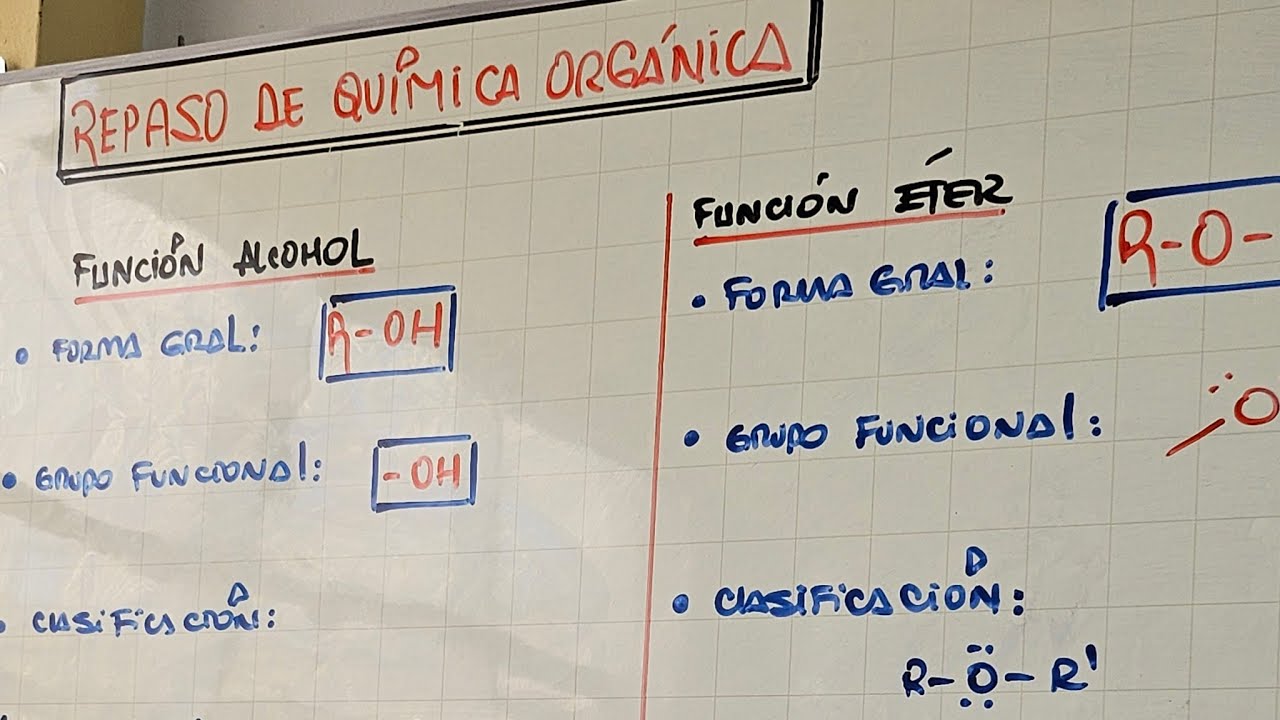 REPASO DE QUÍMICA ORGÁNICA
FUNCIÓN ALCOHOL
• FORMA GRAL: R-OH
• GRUPO FUNCIONAL: -OH
• CLASIFICACIÓN:
FUNCIÓN ÉTER
• FORMA GRAL: R-O-
• GRUPO FUNCIONAL: O
• CLASIFICACIÓN:
R-Ö-R'